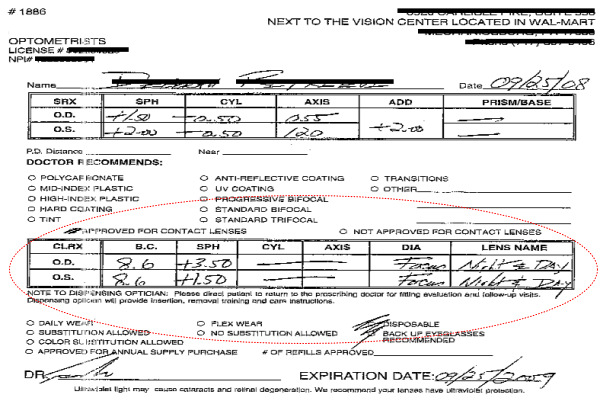 # 1886
NEXT TO THE VISION CENTER LOCATED IN WAL-MART
OPTOMETRISTS
LICENSE #
NPI#
Name Date 09/25/08
SRX SPH CYL AXIS ADD PRISM/BASE
O.D. +1.50 -0.50 055 —
O.S. +2.00 -0.50 120 +2.00 —
P.D. Distance Near
DOCTOR RECOMMENDS:
○ POLYCARBONATE ○ ANTI-REFLECTIVE COATING ○ TRANSITIONS
○ MID-INDEX PLASTIC ○ UV COATING ○ OTHER
○ HIGH-INDEX PLASTIC ○ PROGRESSIVE BIFOCAL
○ HARD COATING ○ STANDARD BIFOCAL
○ TINT ○ STANDARD TRIFOCAL
APPROVED FOR CONTACT LENSES ○ NOT APPROVED FOR CONTACT LENSES
CLRX B.C. SPH CYL AXIS DIA LENS NAME
O.D. 8.6 +3.50 — — Focus Night & Day
O.S. 8.6 +1.50 — — Focus Night & Day
NOTE TO DISPENSING OPTICIAN: Please direct patient to return to the prescribing doctor for fitting evaluation and follow-up visits.
Dispensing optician will provide insertion, removal training and care instructions.
○ DAILY WEAR ○ FLEX WEAR DISPOSABLE
○ SUBSTITUTION ALLOWED ○ NO SUBSTITUTION ALLOWED BACK UP EYEGLASSES
○ COLOR SUBSTITUTION ALLOWED RECOMMENDED
○ APPROVED FOR ANNUAL SUPPLY PURCHASE # OF REFILLS APPROVED
DR. EXPIRATION DATE: 09/25/2009
Ultraviolet light may cause cataracts and retinal degeneration. We recommend your lenses have ultraviolet protection.